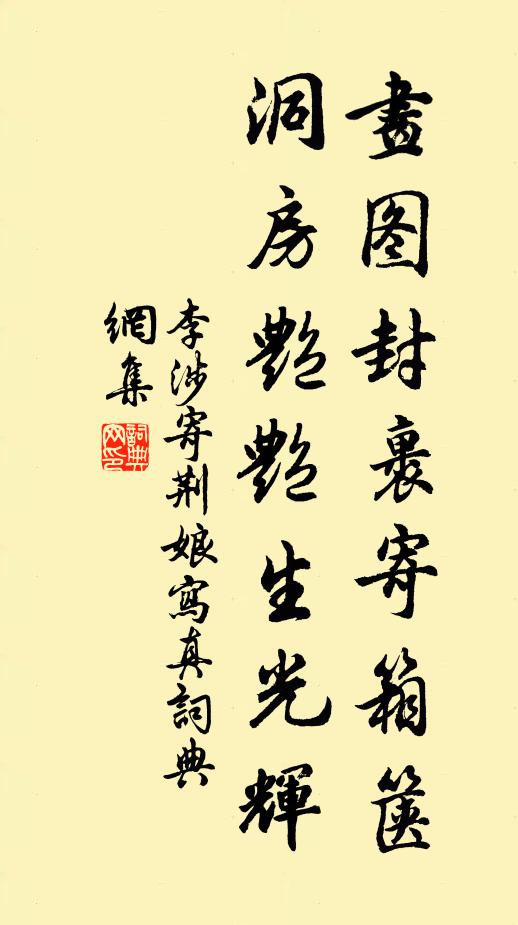 畫图封裹寄箱篋
洞房艷艷生光輝
李涉寄荆娘寫真詞典
網集
詞典
网印